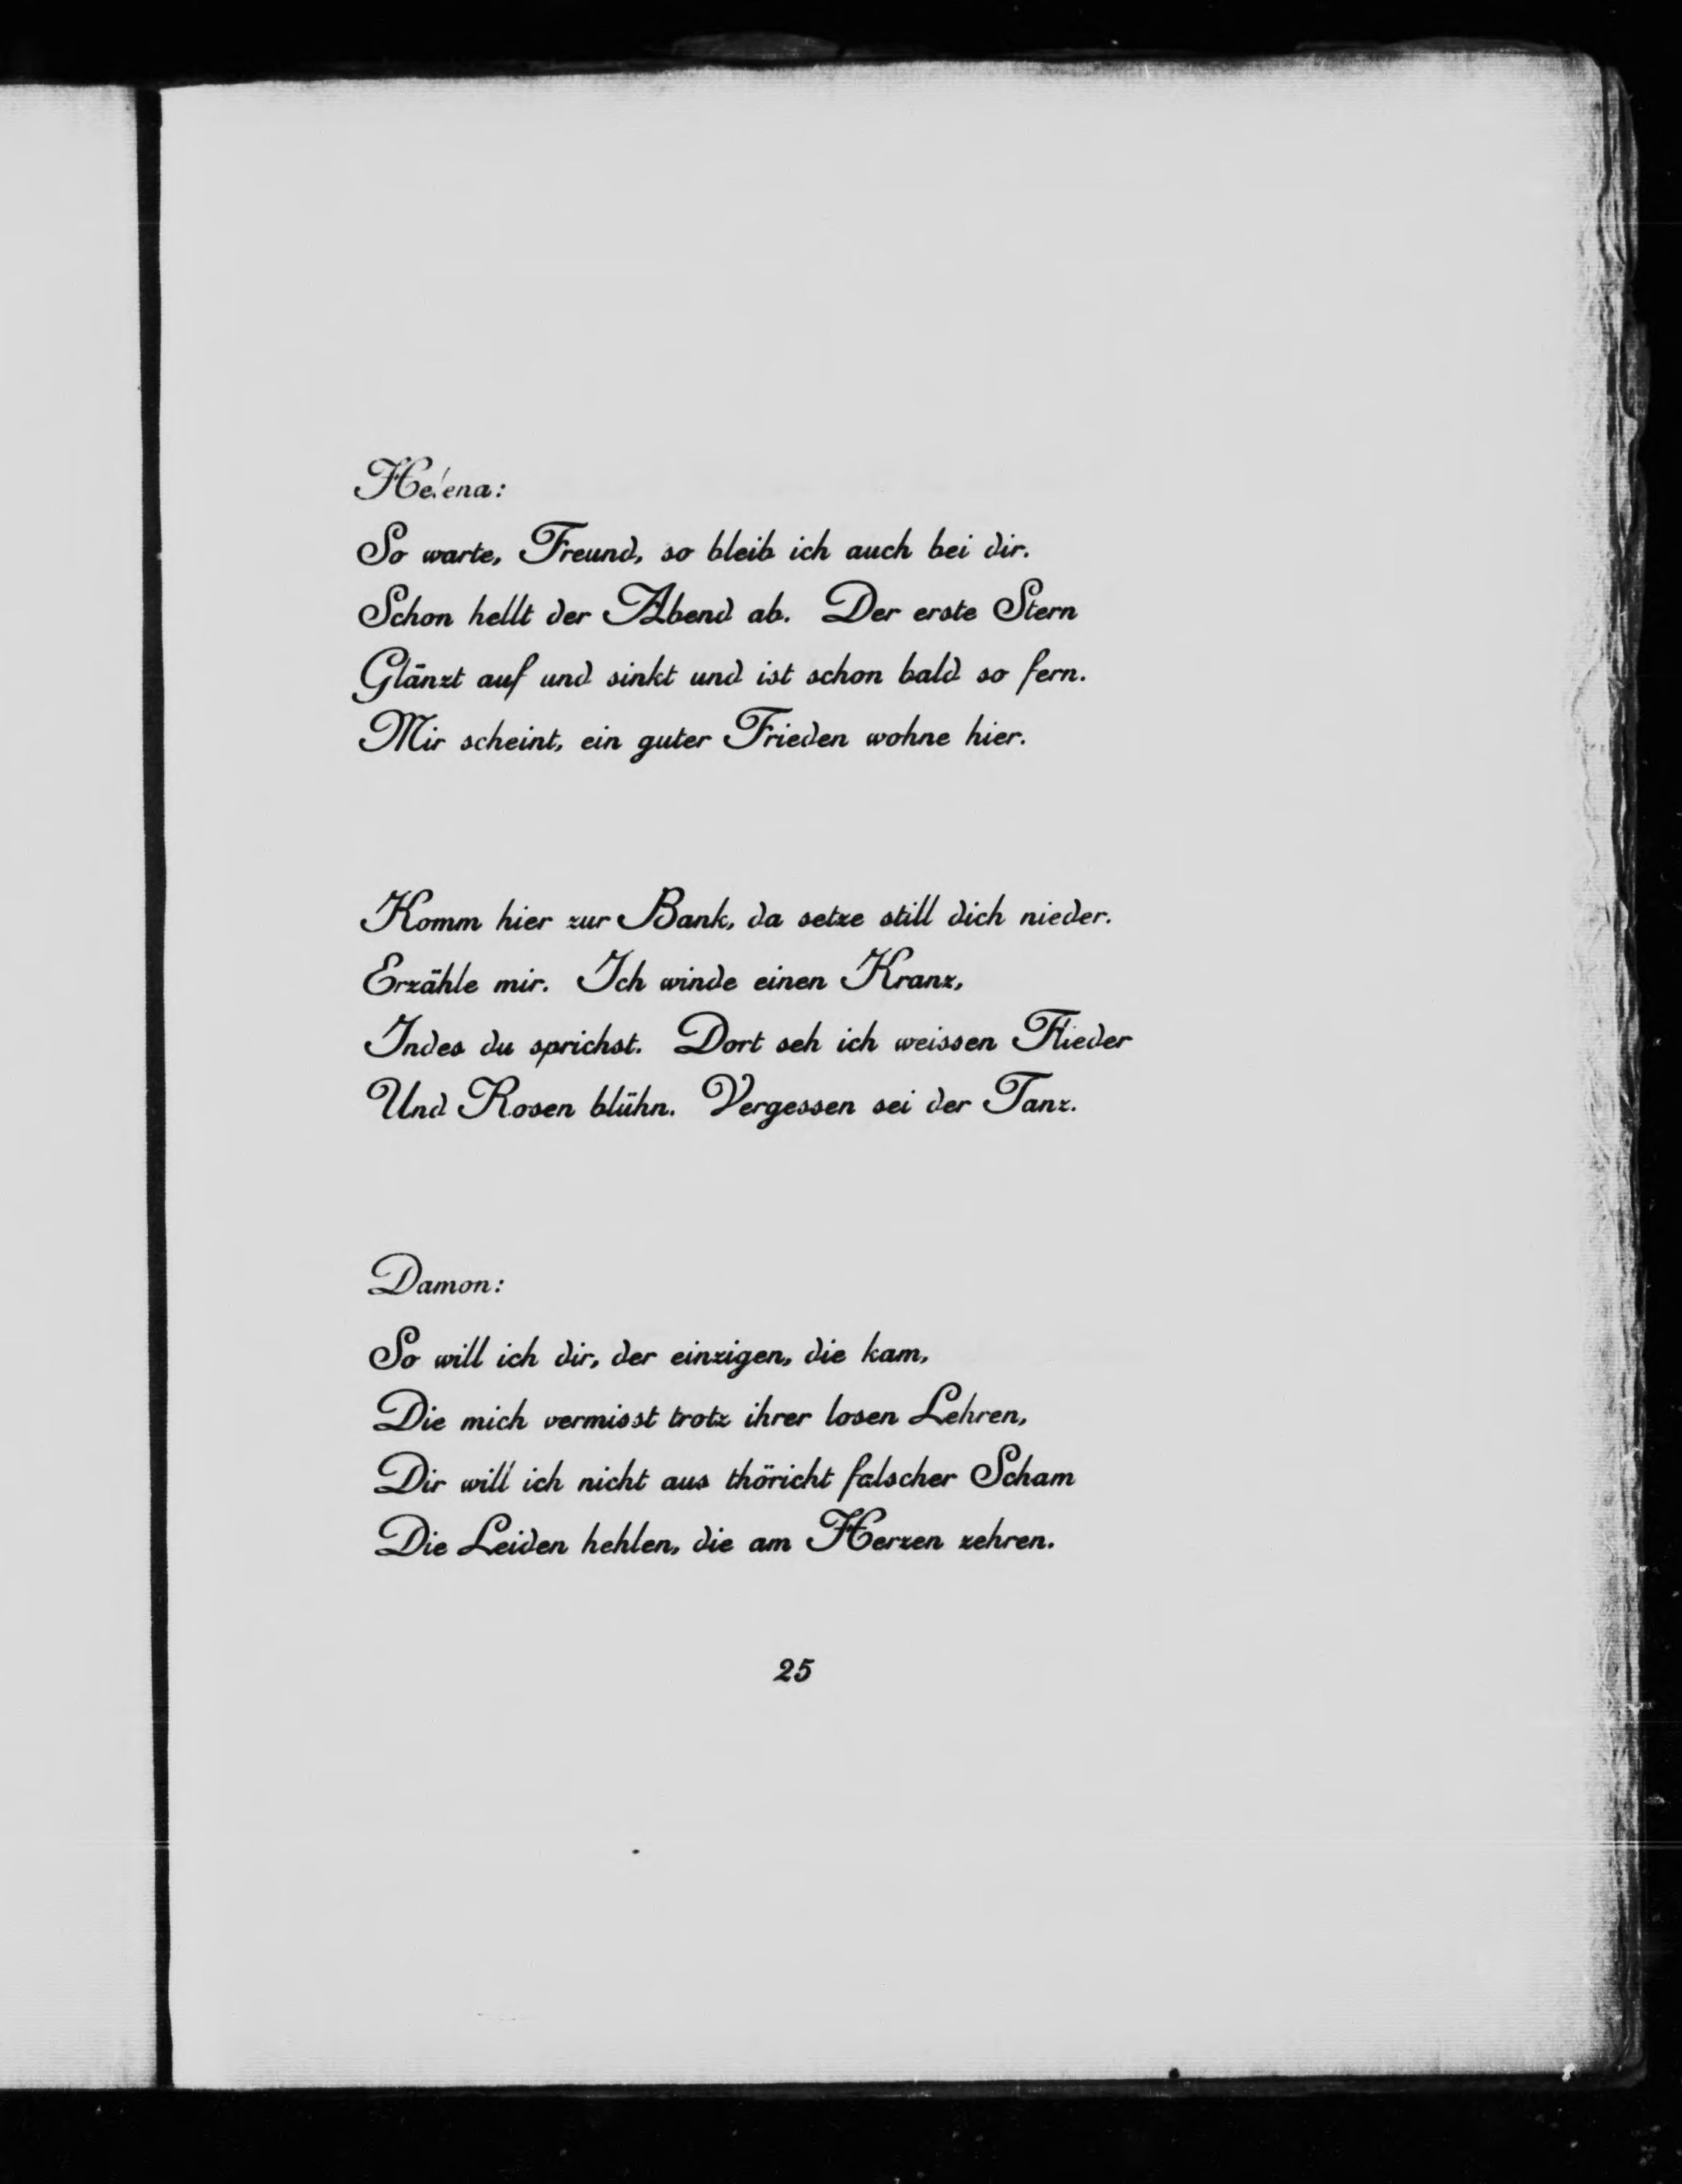 Helena:
So warte, Freund, so bleib ich auch bei dir.
Schon hellt der Abend ab. Der erste Stern
Glänzt auf und sinkt und ist schon bald so fern.
Mir scheint, ein guter Frieden wohne hier.
Komm hier zur Bank, da setze still dich nieder.
Erzähle mir. Ich winde einen Kranz,
Indes du sprichst. Dort seh ich weissen Flieder
Und Rosen blühn. Vergessen sei der Tanz.
Damon:
So will ich dir, der einzigen, die kam,
Die mich vermisst trotz ihrer losen Lehren,
Dir will ich nicht aus thöricht falscher Scham
Die Leiden hehlen, die am Herzen zehren.
25